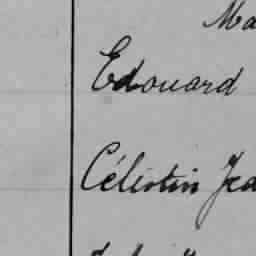 Ma
Edouard
Célestin Jea